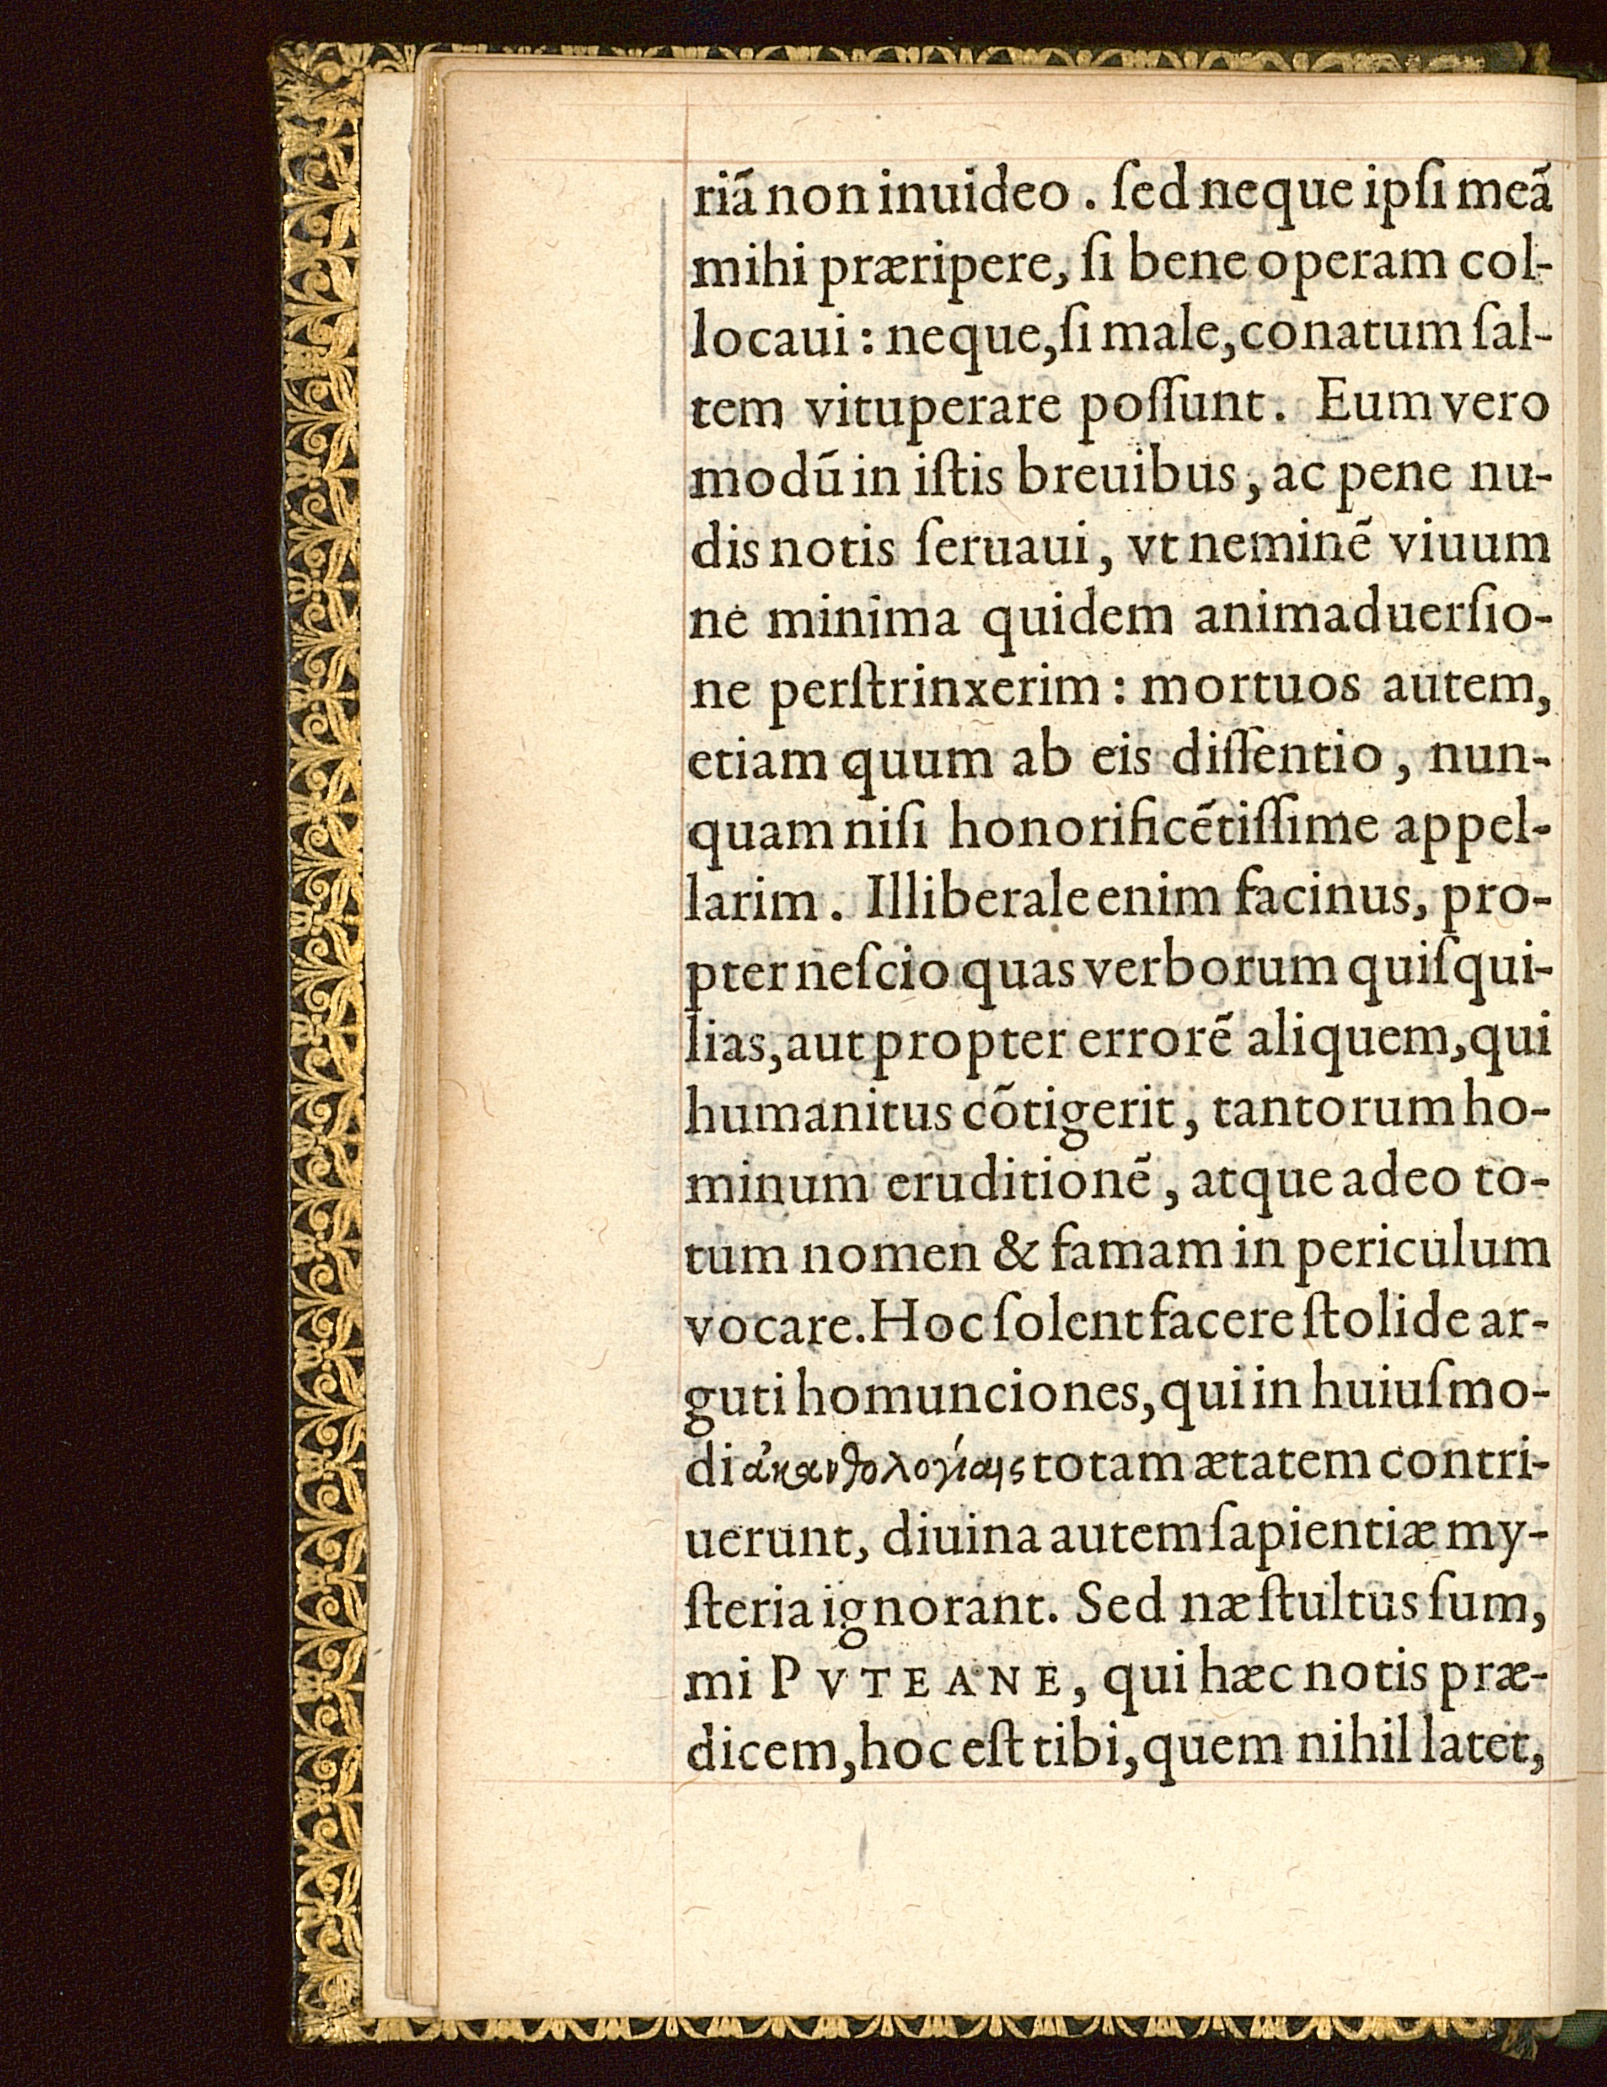 riã non inuideo. ſed neque ipſi meã
mihi præripere, ſi bene operam col-
locaui: neque, ſi male, conatum ſal-
tem vituperare poſſunt. Eum vero
modū in iſtis breuibus, ac pene nu-
dis notis ſeruaui, vt neminẽ viuum
ne minima quidem animaduerſio-
ne perſtrinxerim: mortuos autem,
etiam quum ab eis diſſentio, nun-
quam niſi honorificẽtiſſime appel-
larim. Illiberale enim facinus, pro-
pter neſcio quas verborum quiſqui-
lias, aut propter errorẽ aliquem, qui
humanitus cõtigerit, tantorum ho-
minum eruditionẽ, atque adeo to-
tum nomen & famam in periculum
vocare. Hoc ſolent facere ſtolide ar-
guti homunciones, qui in huiuſmo-
di ἀκανθολογίαις totam ætatem contri-
uerunt, diuina autem ſapientiæ my-
ſteria ignorant. Sed næ ſtultus ſum,
mi PVTEANE, qui hæc notis præ-
dicem, hoc eſt tibi, quem nihil latet,